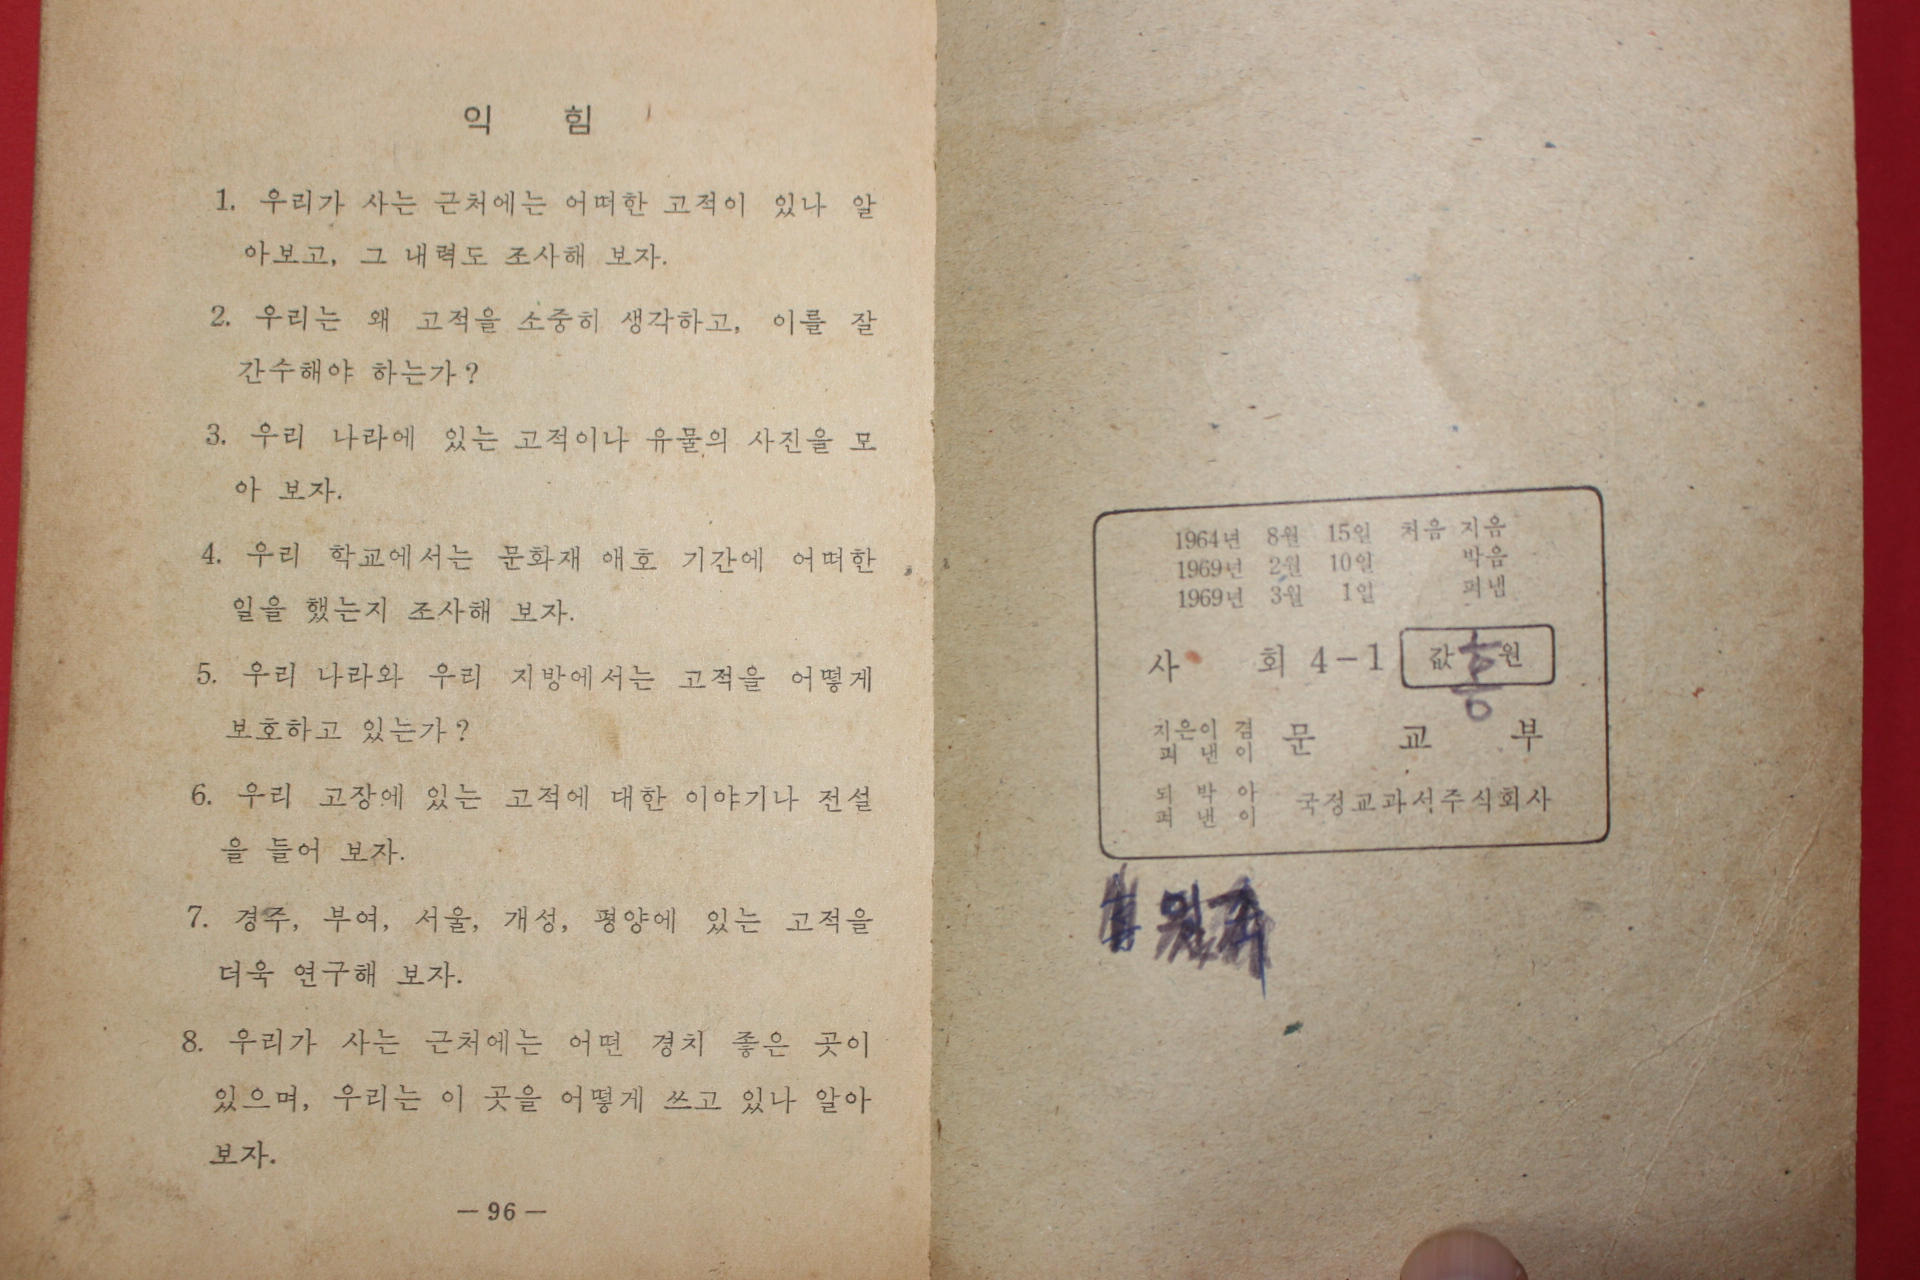 익 힘
1. 우리가 사는 근처에는 어떠한 고적이 있나 알
아보고, 그 내력도 조사해 보자.
2. 우리는 왜 고적을 소중히 생각하고, 이를 잘
간수해야 하는가?
3. 우리 나라에 있는 고적이나 유물의 사진을 모
아 보자.
4. 우리 학교에서는 문화재 애호 기간에 어떠한
일을 했는지 조사해 보자.
5. 우리 나라와 우리 지방에서는 고적을 어떻게
보호하고 있는가?
6. 우리 고장에 있는 고적에 대한 이야기나 전설
을 들어 보자.
7. 경주, 부여, 서울, 개성, 평양에 있는 고적을
더욱 연구해 보자.
8. 우리가 사는 근처에는 어떤 경치 좋은 곳이
있으며, 우리는 이 곳을 어떻게 쓰고 있나 알아
보자.
— 96 —
1964년 8월 15일 처음 지음
1969년 2월 10일 박음
1969년 3월 1일 펴냄
사 회 4-1 값 원
지은이 겸
펴 낸 이 문 교 부
되 박 아
펴 낸 이 국정교과서주식회사